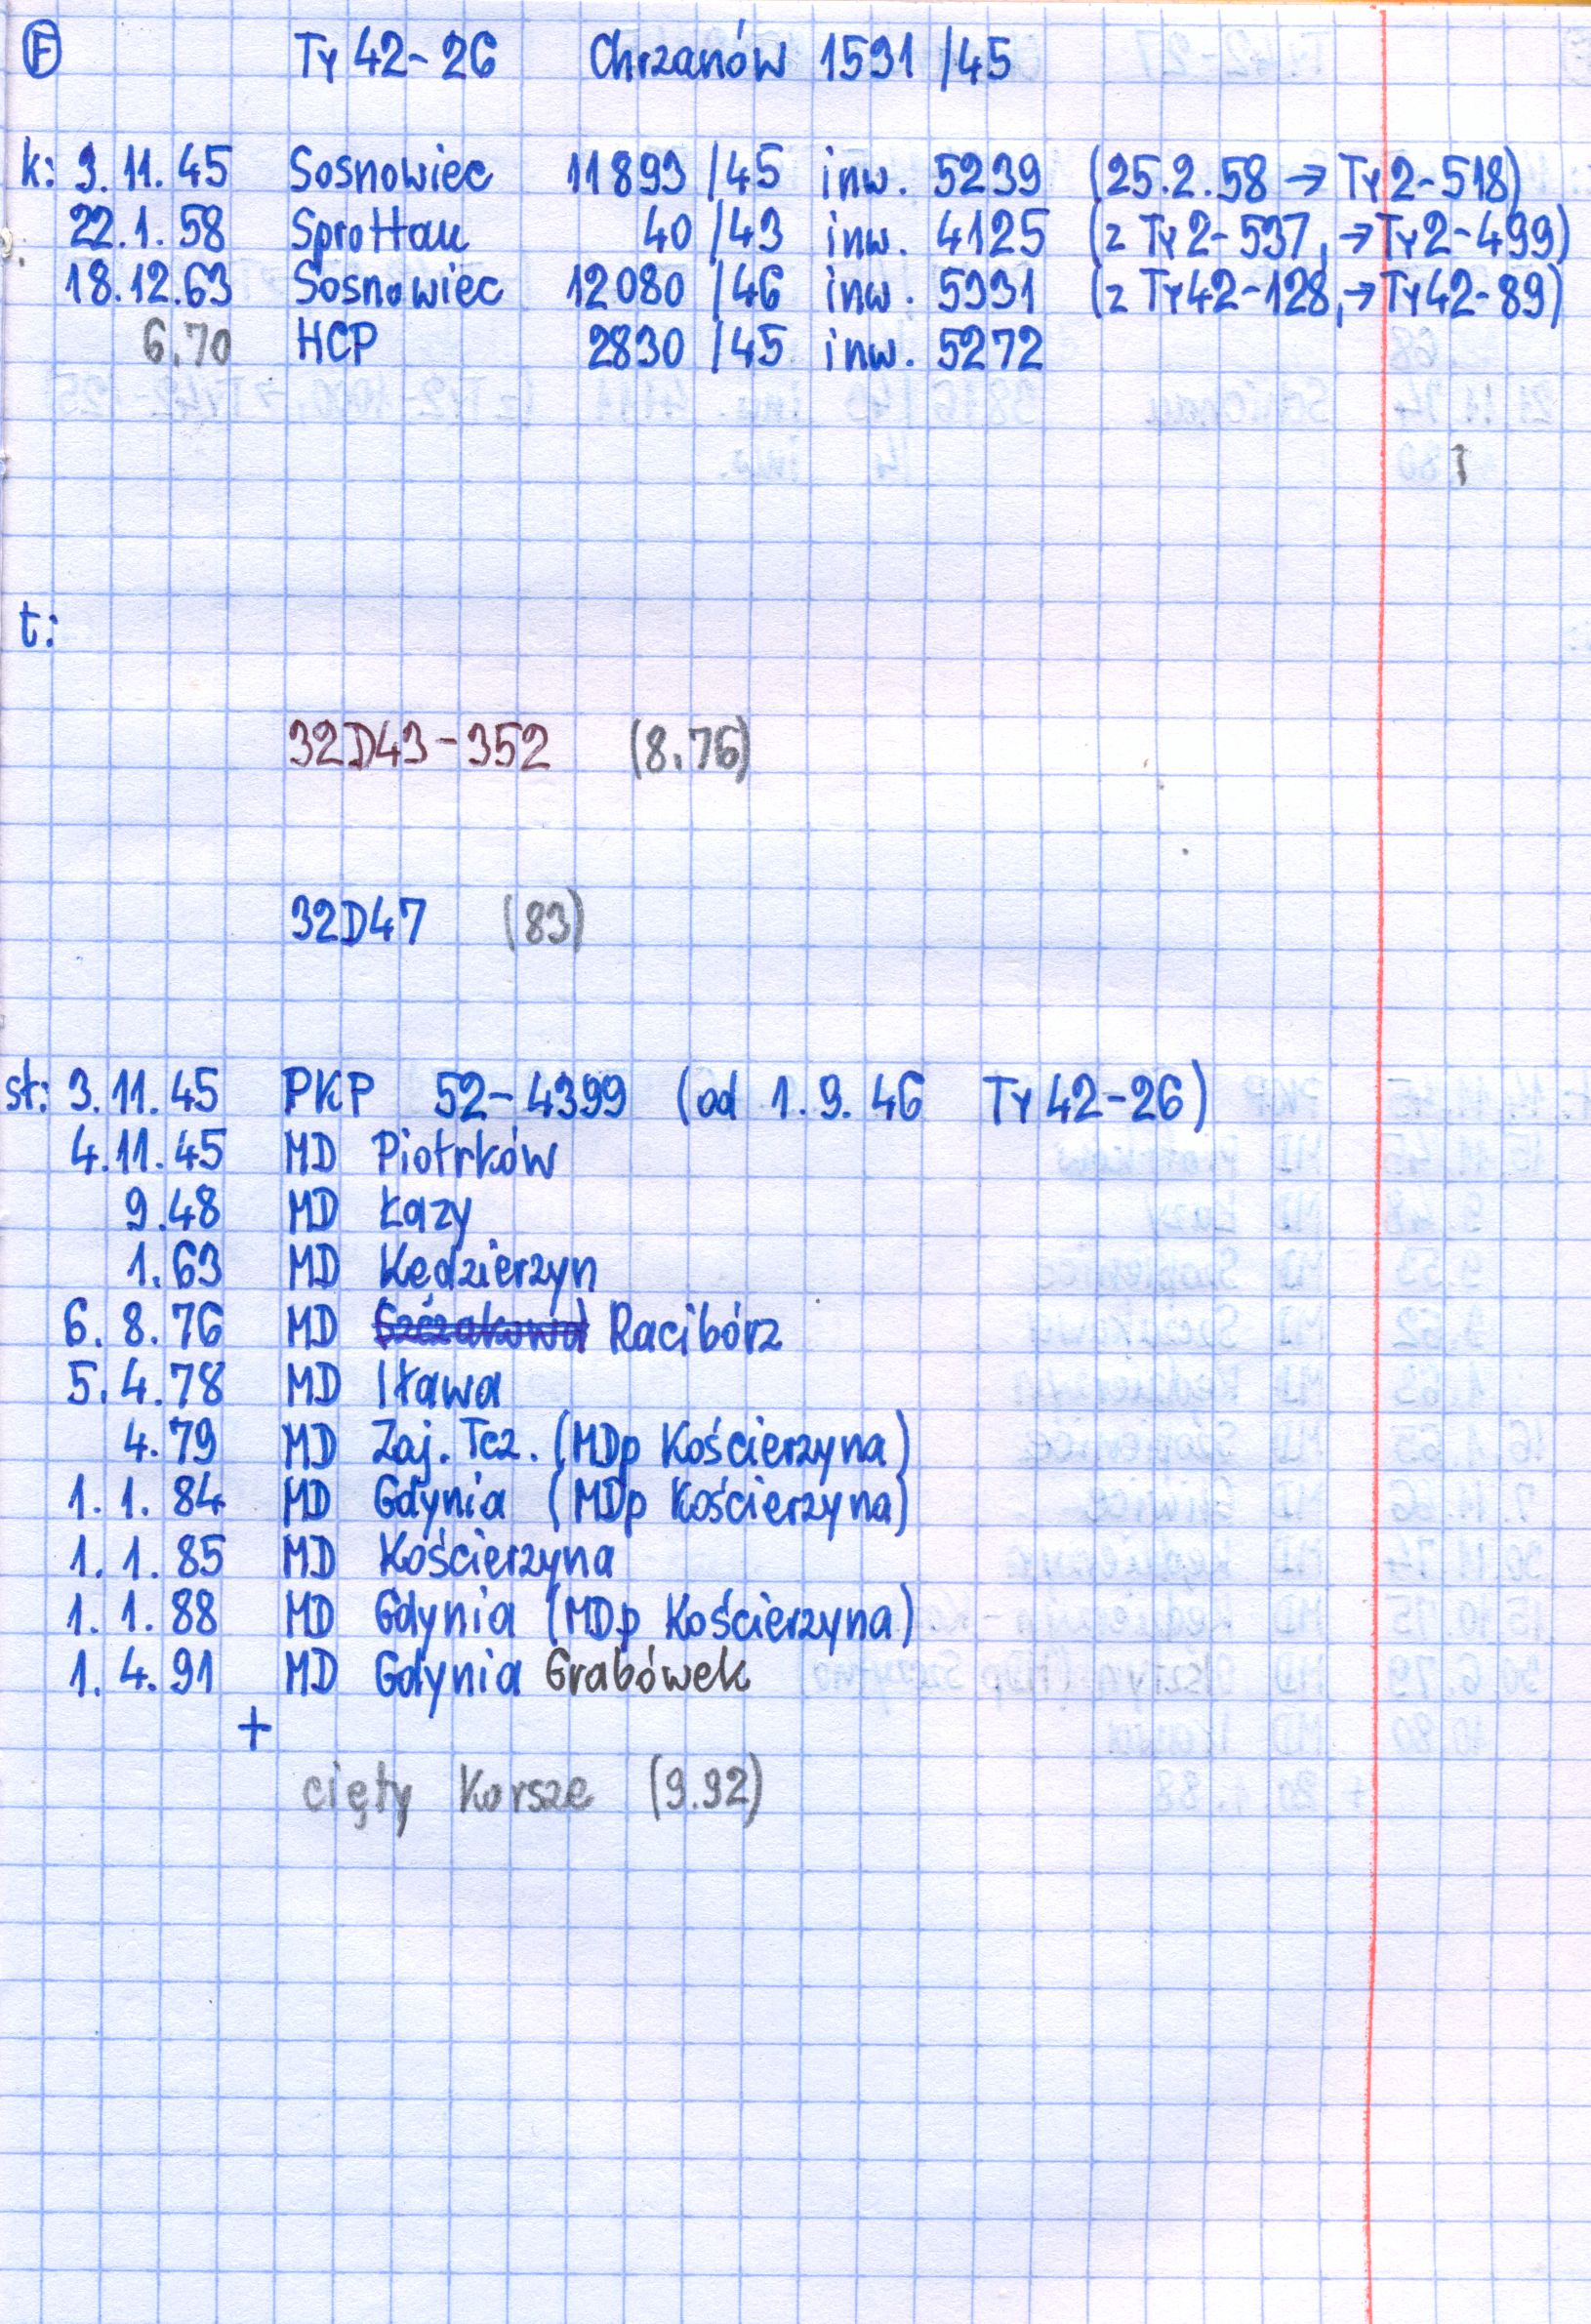 F Ty 42-26 Chrzanów 1591 /45
k: 3.11.45 Sosnowiec 11893 /45 inw. 5239 (25.2.58 → Ty2-518)
22.1.58 Sprottau 40 /43 inw. 4125 (z Ty2-537, → Ty2-499)
18.12.63 Sosnowiec 12080 /46 inw. 5331 (z Ty42-128, → Ty42-89)
6.70 HCP 2830 /45 inw. 5272
t:
32D43-352 (8.76)
32D47 (83)
st: 3.11.45 PKP 52-4399 (od 1.9.46 Ty42-26)
4.11.45 MD Piotrków
9.48 MD Łazy
1.63 MD Kędzierzyn
6.8.76 MD Szczakowa Racibórz
5.4.78 MD Iława
4.79 MD Zaj. Tcz. (MDp Kościerzyna)
1.1.84 MD Gdynia (MDp Kościerzyna)
1.1.85 MD Kościerzyna
1.1.88 MD Gdynia (MDp Kościerzyna)
1.4.91 MD Gdynia Grabówek
+
cięty Korsze (9.92)